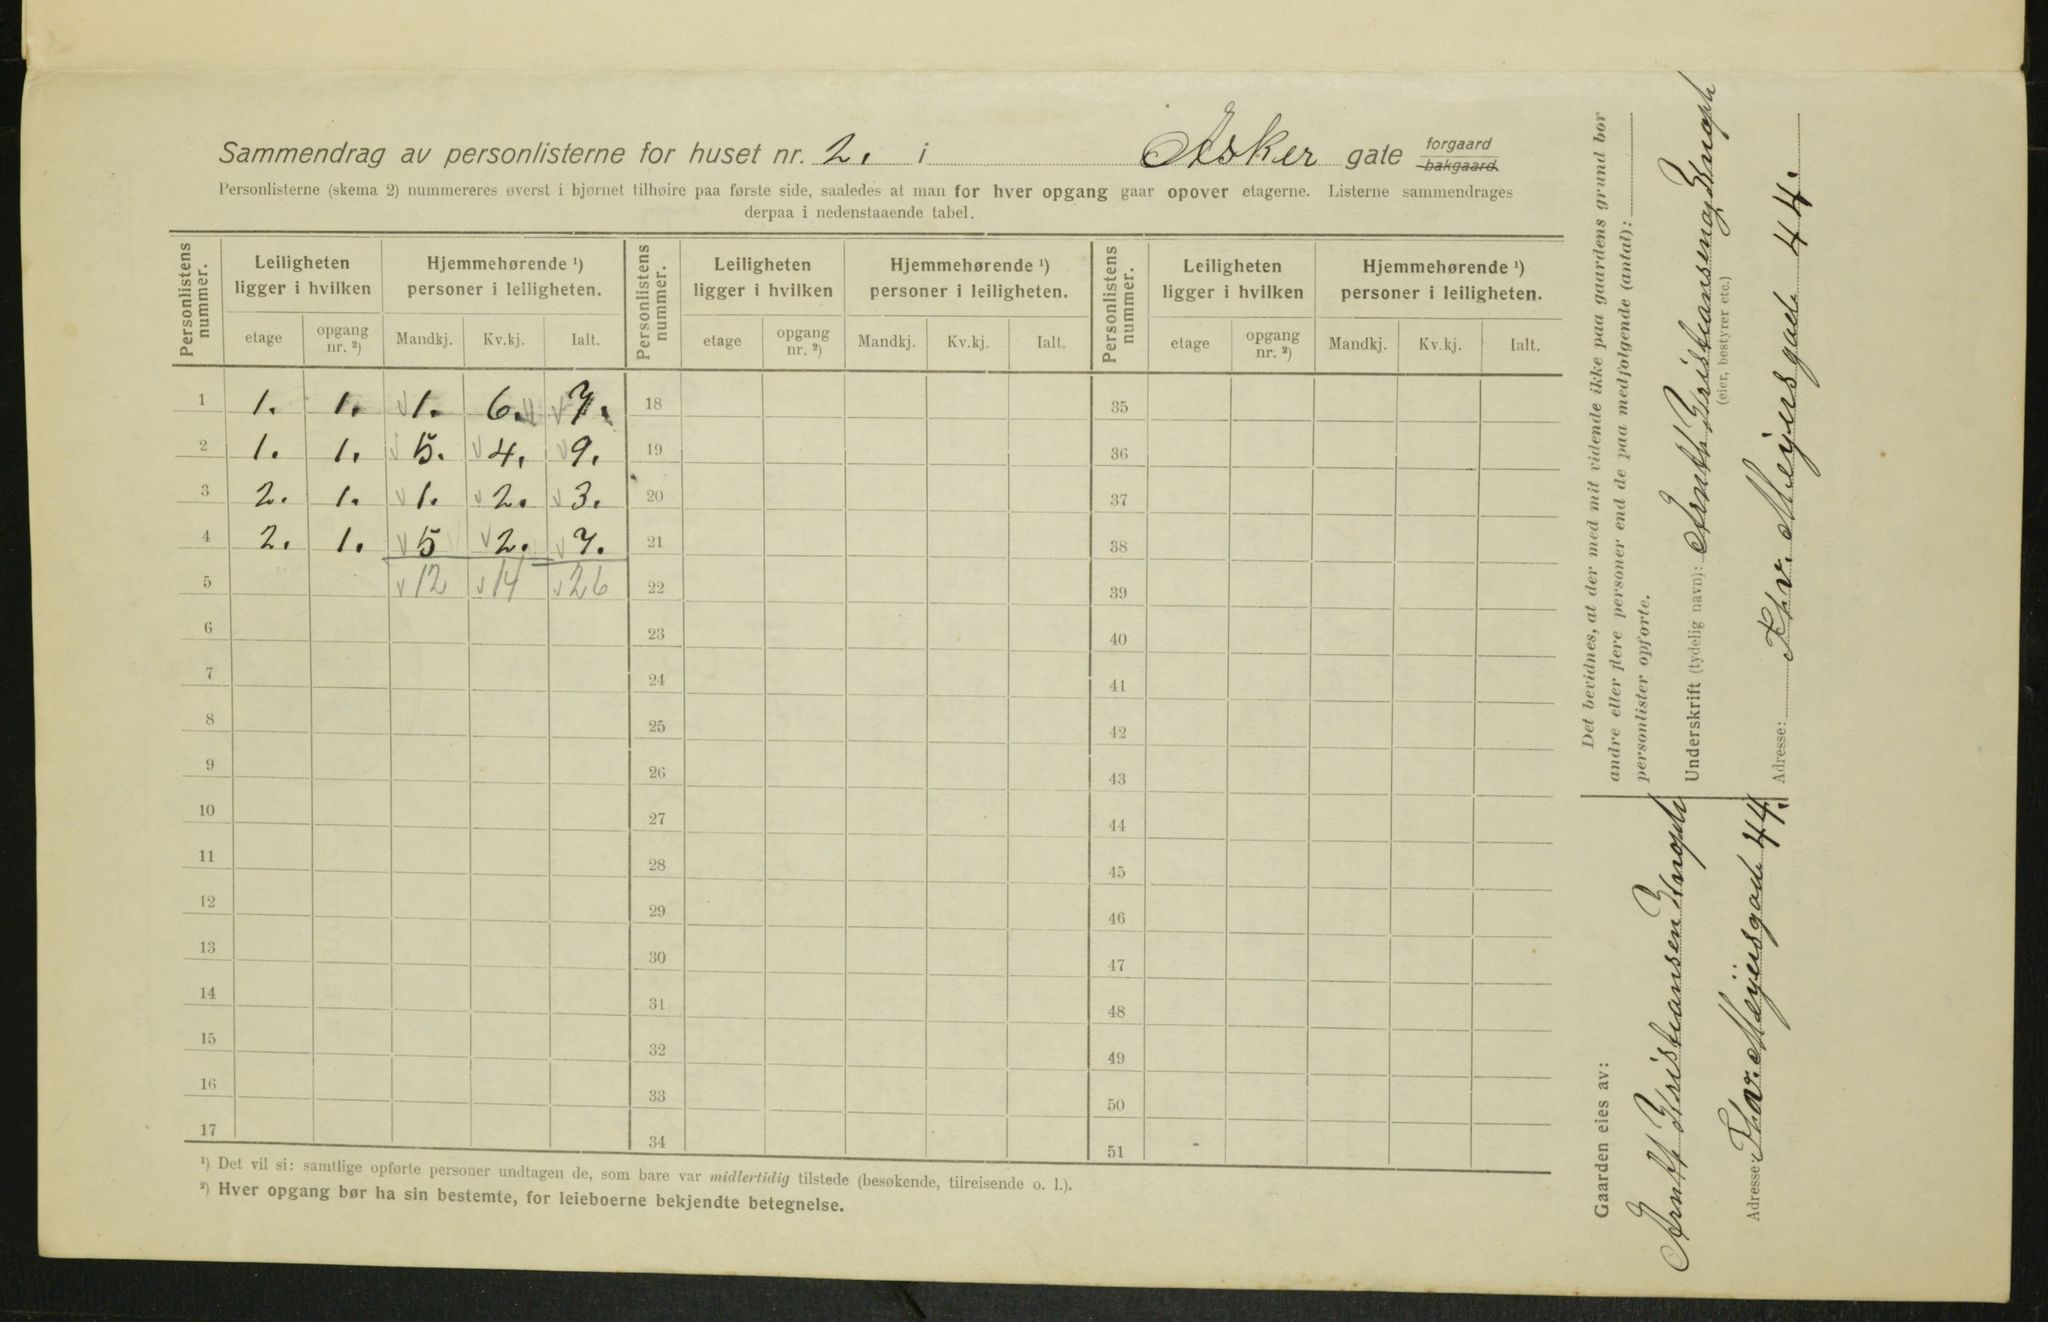 Sammendrag av personlisterne for huset nr. 2. i Asker gate forgaard bakgaard
Personlisterne (skema 2) nummereres øverst i hjørnet tilhøire paa første side, saaledes at man for hver opgang gaar opover etagerne. Listerne sammendrages
derpaa i nedenstaaende tabel.
Personlistens nummer. Leiligheten ligger i hvilken Hjemmehørende ¹) personer i leiligheten. Personlistens nummer. Leiligheten ligger i hvilken Hjemmehørende ¹) personer i leiligheten. Personlistens nummer. Leiligheten ligger i hvilken Hjemmehørende ¹) personer i leiligheten.
etage opgang nr. ²) Mandkj. Kv.kj. Ialt. etage opgang nr. ²) Mandkj. Kv.kj. Ialt. etage opgang nr. ²) Mandkj. Kv.kj. Ialt.
1 1. 1. 1. 6. 7. 18 35
2 1. 1. 5. 4. 9. 19 36
3 2. 1. 1. 2. 3. 20 37
4 2. 1. 5 2. 7. 21 38
5 12 14 26 22 39
6 23 40
7 24 41
8 25 42
9 26 43
10 27 44
11 28 45
12 29 46
13 30 47
14 31 48
15 32 49
16 33 50
17 34 51
¹) Det vil si: samtlige opførte personer undtagen de, som bare var midlertidig tilstede (besøkende, tilreisende o. l.).
²) Hver opgang bør ha sin bestemte, for leieboerne bekjendte betegnelse.
Det bevidnes, at der med mit vidende ikke paa gaardens grund bor
andre eller flere personer end de paa medfølgende (antal):
personlister opførte.
Underskrift (tydelig navn): Arntt Kristiansen Knoph
(eier, bestyrer etc.)
Adresse: Thv. Meijersgade 44.
Gaarden eies av:
Arntt Kristiansen Knoph
Adresse: Thv. Meijersgade 44.